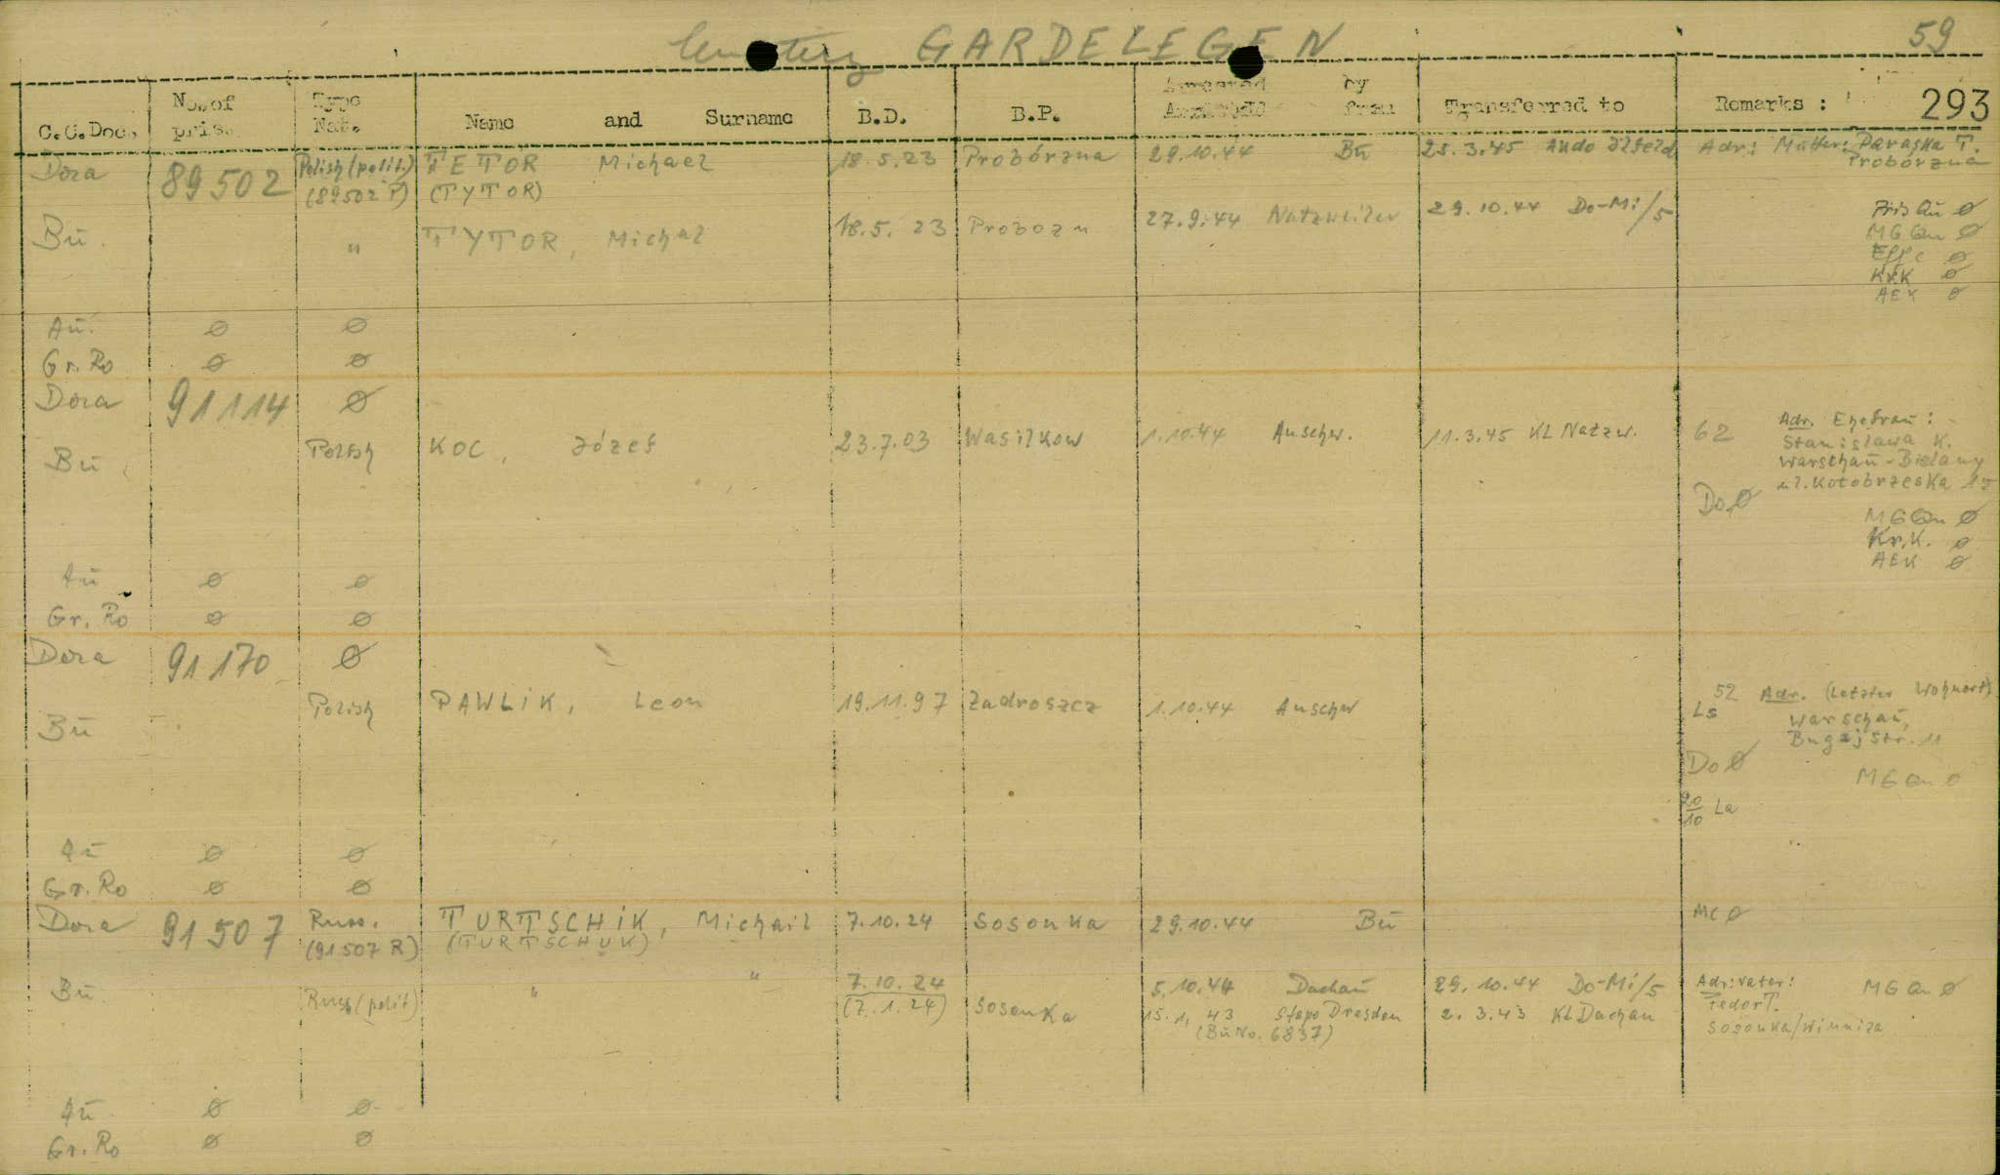 Cemetery GARDELEGEN 59
C.C.Doc. No. of pris. Type Nat. Name and Surname B.D. B.P. Arrested by from Transferred to Remarks : 293
Dora 89502 Polish (polit.) TETOR Michael 18.5.23 Probórzna 29.10.44 Bu 25.3.45 Ando Ilfeld Adr: Mutter: Paraska T.
(89502 P) (TYTOR) Probórzna
Bū. " TYTOR, Michal 18.5.23 Probozn 27.9.44 Natzweiler 29.10.44 Do-Mi/5 Pris Qu Ø
MG Qu Ø
Effe Ø
KrK Ø
AEK Ø
Au. Ø Ø
Gr. Ro Ø Ø
Dora 91114 Ø
Bū Polish KOC, Józef 23.7.03 Wasilkow 1.10.44 Auschw. 11.3.45 KL Natzw. 62 Adr. Ehefrau:
Stanislawa K.
Warschau-Bielany
ul. Kotobrzeska
Do Ø
MG Qu Ø
Kr.K. Ø
AEK Ø
Au Ø Ø
Gr. Ro Ø Ø
Dora 91170 Ø
Bū Polish PAWLiK, Leon 19.11.97 Zadroszcz 1.10.44 Auschw 52 Adr. (Letzter Wohnort)
Ls Warschau,
Bugaj Str. 11
Do Ø MG Qu Ø
20/10 La
Au Ø Ø
Gr. Ro Ø Ø
Dora 91507 Russ. TURTSCHiK, Michail 7.10.24 Sosonka 29.10.44 Bū MC Ø
(91507 R) (TURTSCHUK)
Bū Russ (polit) " " 7.10.24 Sosonka 5.10.44 Dachau 29.10.44 Do-Mi/5 Adr: Vater: MG Qu Ø
(7.1.24) 15.1.43 Stapo Dresden 2.3.43 KL Dachau Fedor T.
(Bu No. 6837) Sosonka/Winniza
Au Ø Ø
Gr. Ro Ø Ø